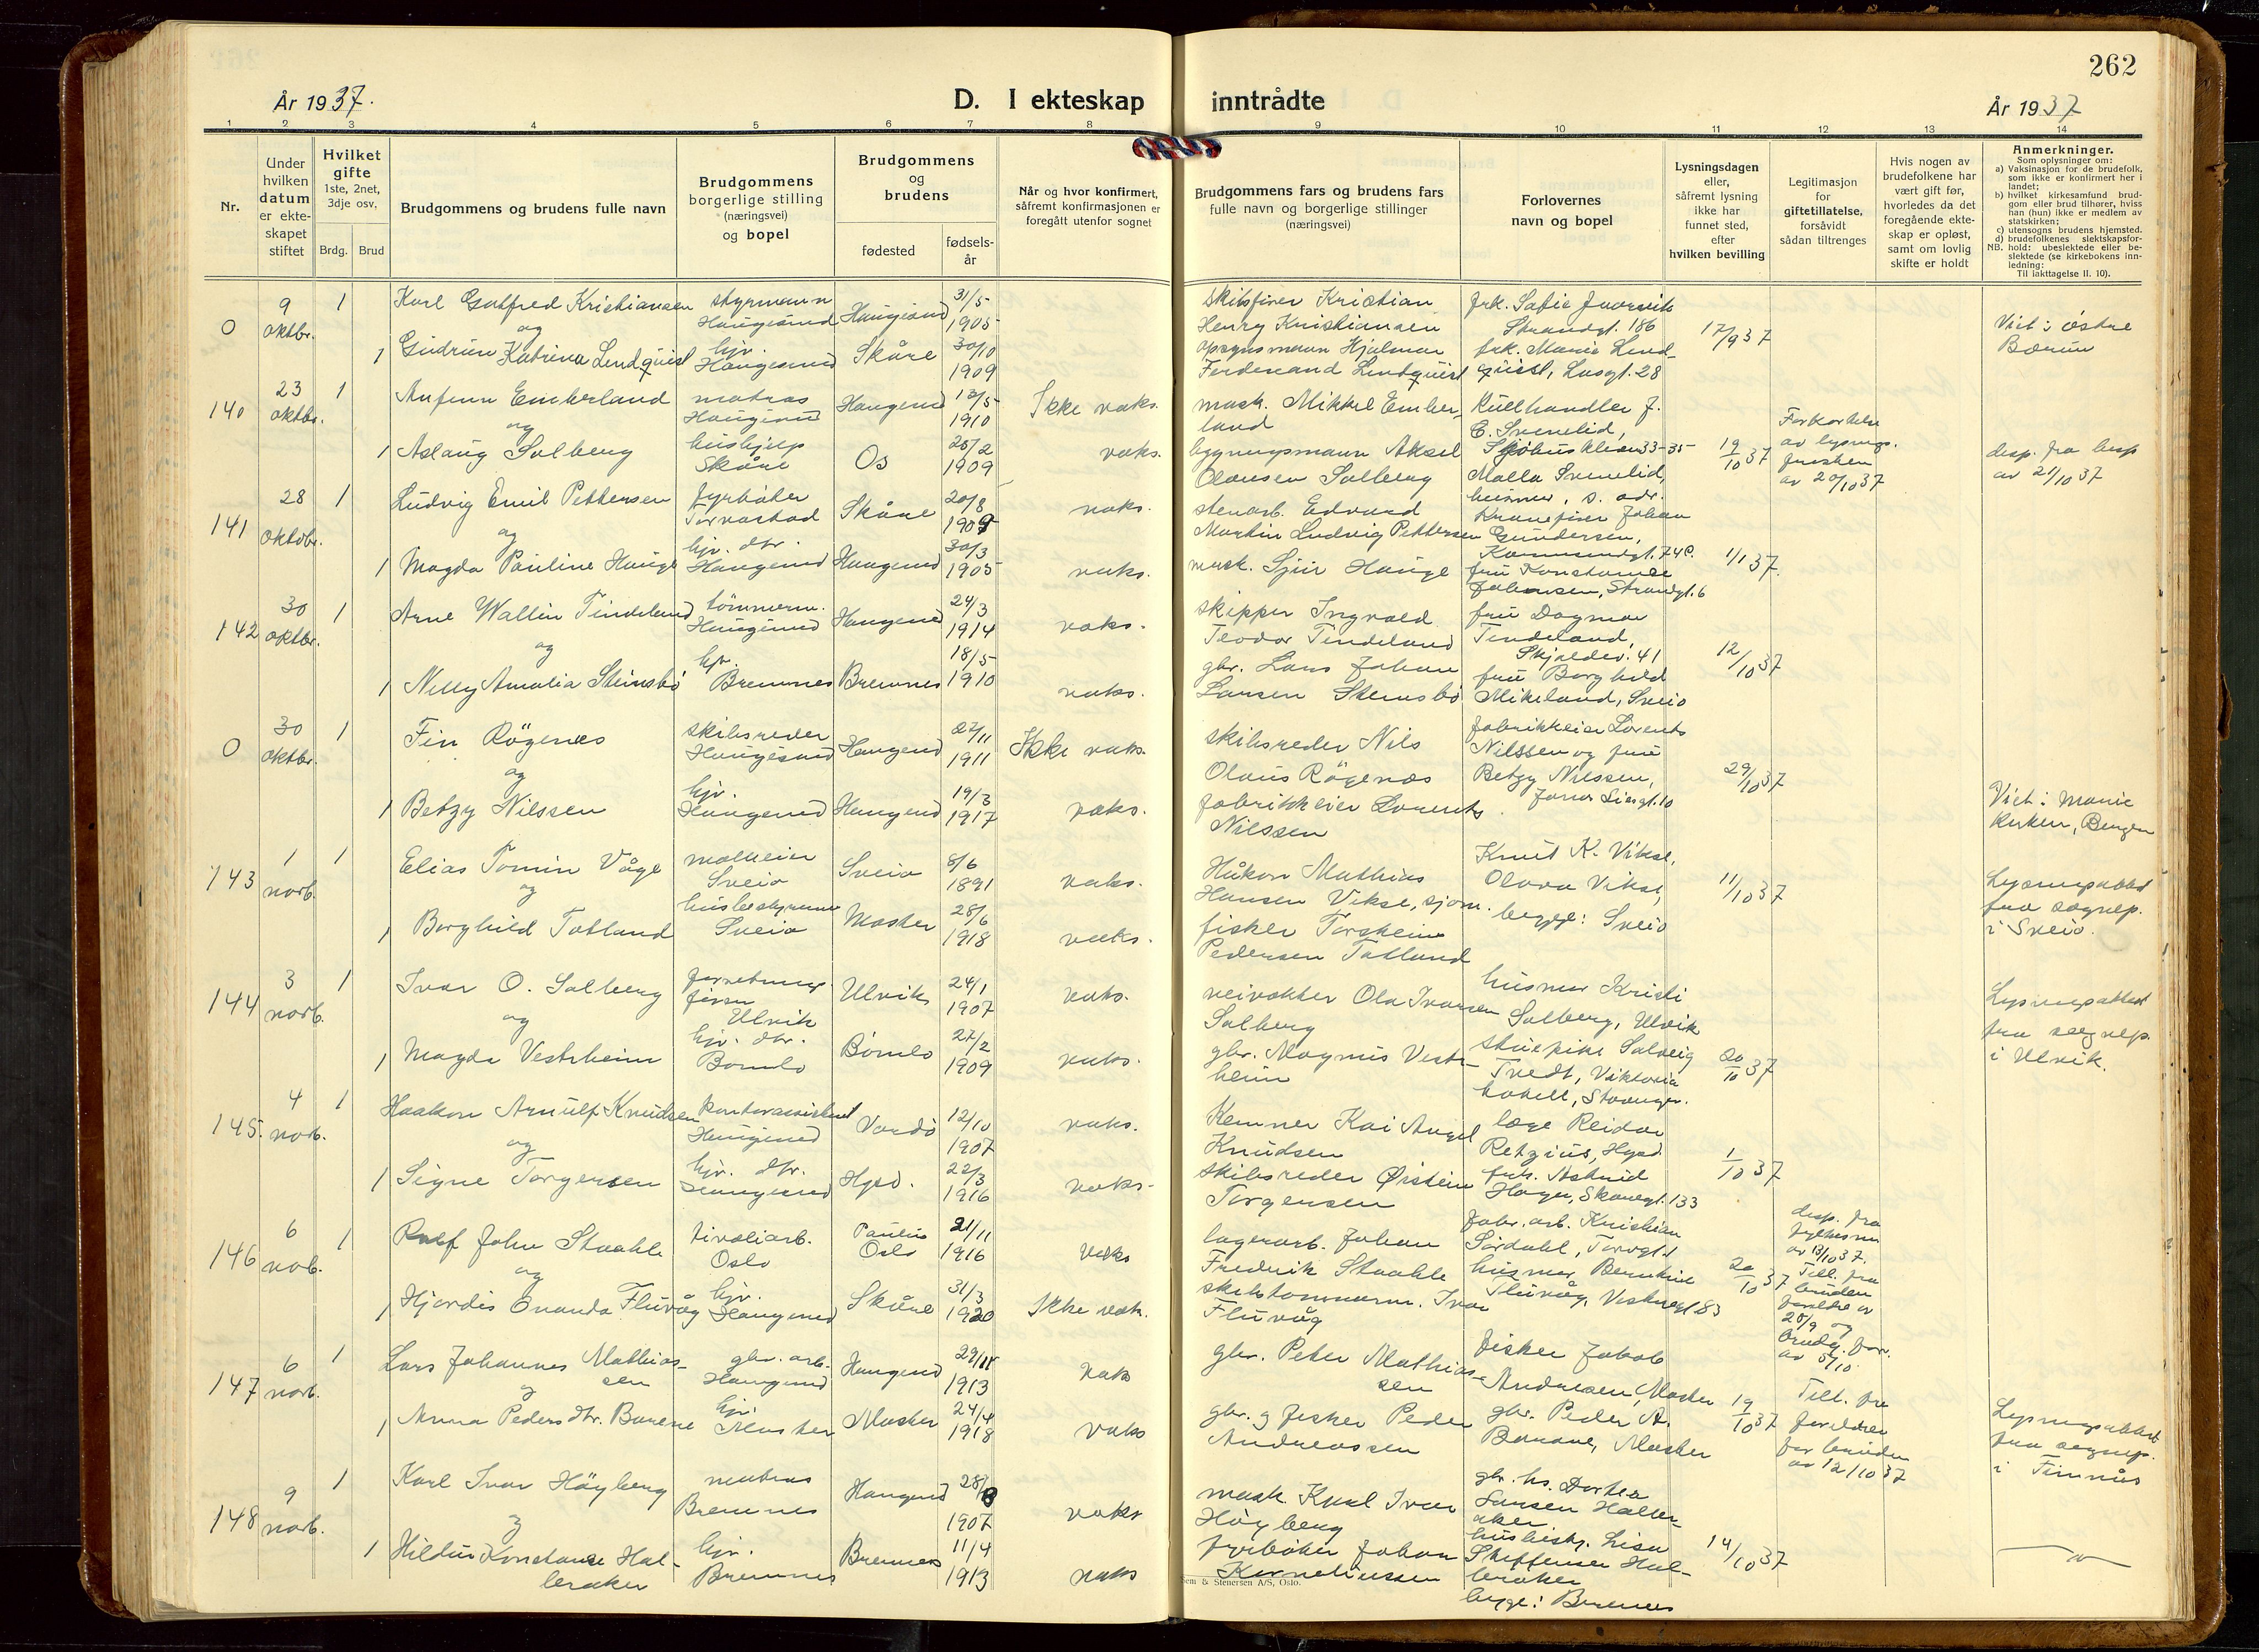 262
År 1937.
D. I ekteskap inntrådte
År 1937
1 2 3 4 5 6 7 8 9 10 11 12 13 14
Nr.
Under hvilken datum er ekteskapet stiftet
Hvilket gifte 1ste, 2net, 3dje osv.
Brdg. Brud
Brudgommens og brudens fulle navn
Brudgommens borgerlige stilling (næringsvei) og bopel
Brudgommens og brudens
fødested
fødsels-år
Når og hvor konfirmert, såfremt konfirmasjonen er foregått utenfor sognet
Brudgommens fars og brudens fars fulle navn og borgerlige stillinger (næringsvei)
Forlovernes navn og bopel
Lysningsdagen eller, såfremt lysning ikke har funnet sted, efter hvilken bevilling
Legitimasjon for giftetillatelse, forsåvidt sådan tiltrenges
Hvis nogen av brudefolkene har vært gift før, hvorledes da det foregående ekteskap er opløst, samt om lovlig skifte er holdt
Anmerkninger.
Som oplysninger om:
a) Vaksinasjon for de brudefolk, som ikke er konfirmert her i landet;
b) hvilket kirkesamfund brudgom eller brud tilhører, hviss han (hun) ikke er medlem av statskirken;
c) utensogns brudens hjemsted.
d) brudefolkenes slektskapsforhold: ubeslektede eller beslektede (se kirkebokens innledning:
NB.
Til iakttagelse II. 10).
0 9 oktbr. 1 Karl Gotfred Kristiansen styrmann Haugesund Haugesund 31/5 1905 skibsfører Kristian Henry Kristiansen frk. Sofie Strandgt. 186 17/9 37 Viet i østre Bærum
og
1 Gudrun Katrina Lendquist hjv. Haugesund Skåre 30/10 1909 opsynsmann Hjalmar Ferdinand Lendquist frk. Marie Lendquist, 28
140 23 oktbr. 1 Anfinn Emberland matros Haugesund Haugesund 13/5 1910 Ikke vaks. mask. Mikkel Emberland Kullhandler J. C. Svenelid, 19/10 37 Forkortelse av lysningsfristen av 20/10 37 desp. fra bisp av 21/10 37
og
1 Aslaug Solberg hushjelp Skåre Os 28/2 1909 vaks. bygningsmann Aksel Olausen Solberg Malla Svenelid, husmor, s. adr.
141 28 oktobr. 1 Ludvig Emil Pettersen fyrbøter Torvastad Skåre 20/8 1909 vaks. stenarb. Edvard Martin Ludvig Pettersen Kranefører Johan Gundersen, 74c. 1/1 37.
og
1 Magda Pauline Hauge hjv. dtr. Haugesund Haugesund 30/3 1905 vaks. mask. Sjur Hauge fru Konstanse Johansen, Strandgt. 6
142 30 oktbr. 1 Arne Wallin Tindeland tømmerm. Haugesund Haugesund 24/3 1914 vaks. skipper Ingvald Teodor Tindeland fru Dagmar Tindeland, Skjoldev. 41 12/10 37
og
1 Nelly Amalia Steinsbø hjv. Bremnes Bremnes 18/5 1910 vaks. gbr. Lars Johan Larsen Stensbø fru Borghild Mikeland, Sveio
0 30 oktbr. 1 Fin Røgenes skibsreder Haugesund Haugesund 27/11 1911 Ikke vaks. skibsreder Nils Olaus Røgenæs fabrikkeier Lorents Nilssen og fru Betzy Nilssen, 29/10 37
og
1 Betzy Nilssen hjv. Haugesund Haugesund 19/3 1917 vaks. fabrikkeier Lorents Nilssen Viet i Mariekirken, Bergen
143 1 novb. 1 Elias Tomin Våge Sveio Sveio 8/6 1891 vaks. Håkon Mathias Hansen Vikse, sjøm. Knut K. Vikse, Olava Vikse, begge: Sveio 11/10 37 Lysningsattest fra sognep. i Sveio.
og
1 Borghild Totland husbestyrerinne Sveio Moster 28/6 1918 vaks. fisker Torstein Pedersen Totland
144 3 novb. 1 Ivar O. Solberg Ulvik Ulvik 24/1 1907 vaks. veivokter Ola Ivarsen Solberg husmor Kristi Solberg, Ulvik 20/10 37 Lysningsattest fra sognep. i Ulvik.
og
1 Magda Vestrheim hjv. dtr. Bømlo Bømlo 27/2 1909 vaks. gbr. Magnus Vestrheim stuepike Solveig Tvedt, Viktoria hotell, Stavanger.
145. 4 nov. 1 Haakon Arnulf Knudsen kontorassistent Haugesund Vardø 12/10 1907 vaks. Kemner Kai Angel Knudsen læge Reidar Retzius, Hgsd. 1/10 37
og
1 Signe Torgersen hjv. dtr. Haugesund Hgsd. 22/3 1916 vaks. skibsreder Øistein Torgersen frk. Astrid Skåregt. 133
146 6 nob. 1 Rolf John Staahle tivoliarb. Oslo Paulus Oslo 21/11 1916 vaks lagerarb. Johan Fredrik Staahle fabr. arb. Kristian Sørdahl, Torvgt. 1 20/10 37 desp. fra fylkesm. av 13/10 37. Till. fra brudens foreldre av 28/9 og brudg. for. av 5/10.
og
1 Hjørdis Ovanda Fluvåg hjv. Haugesund Skåre 31/3 1920 Ikke vak. skibstømmerm. Ivar Fluvåg husmor Fluvåg, 83
147 6 novb. 1 Lars Johannes Mathiassen gbr. arb. Haugesund Haugesund 29/11 1913 vaks gbr. Peter Mathiassen fisker Jakob Andreasen, Moster 19/10 37 Till. fra foreldre for bruden av 12/10 37 Lysningsattest fra sognep. i Finnås
og
1 Anna Pedersdtr. Barane hjv. Moster Moster 24/4 1918 vaks gbr. og fisker Peder Andreassen gbr. Peder A. Barane, Moster
148 9 novb. 1 Karl Ivar Høyberg matros Bremnes Haugesund 28/8 1907 vaks mask. Karl Ivar Høyberg gbr. hs. Dortea Larsen Halleraker 14/10 37
og
1 Hildur Konstanse Halleraker hjv. Bremnes Bremnes 11/4 1913 vaks fyrbøter Johan Korneliussen husbest. Lisa Steffensen Halleraker begge: Bremnes
Sem & Stenersen A/S, Oslo.